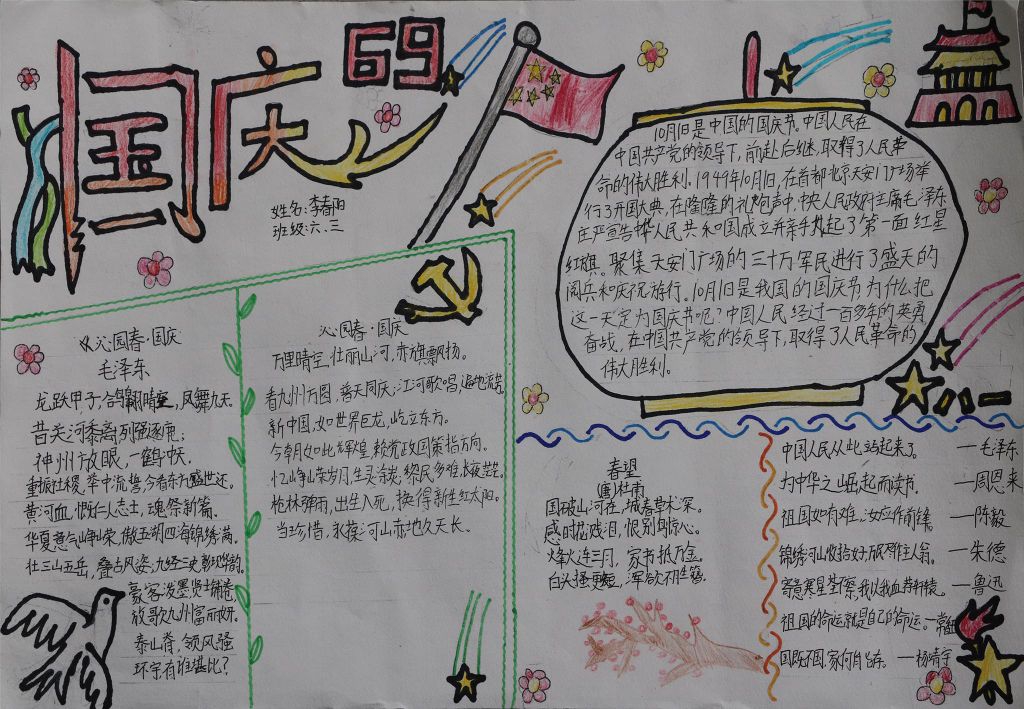 国庆
69
姓名:李春阳
班级:六、三
10月1日是中国的国庆节。中国人民在
中国共产党的领导下,前赴后继,取得了人民革
命的伟大胜利。1949年10月1日,在首都北京天安门广场举
行了开国大典,在隆隆的礼炮声中,中央人民政府主席毛泽东
庄严宣告中华人民共和国成立并亲手升起了第一面红星
红旗。聚集天安门广场的三十万军民进行了盛天的
阅兵和庆祝游行。10月1日是我国的国庆节为什么把
这一天定为国庆节呢?中国人民经过一百多年的英勇
奋战,在中国共产党的领导下,取得了人民革命的
伟大胜利。
八一
《沁园春·国庆
毛泽东
龙跃甲子,鸽翱晴空,凤舞九天。
昔关河黍离,列强逐鹿;
神州放眼,一鹤冲天。
重振社稷,举中流誓,今看东方盛世还。
黄河血,慨仁人志士,魂祭新篇。
华夏意气峥荣,傲五湖四海锦绣满。
壮三山五岳,叠古风姿,九经三史,彰现华韵。
豪客泼墨,贤士铺卷,
放歌九州富丽妍。
泰山脊,领风骚
环宇,有谁堪比?
沁园春·国庆
万里晴空,壮丽山河,赤旗飘扬。
看九州方圆,普天同庆;江河歌唱,遍地流芳。
新中国,如世界巨龙,屹立东方。
今朝如此辉煌,赖党政国策指方向。
忆峥荣岁月,生灵涂炭,黎民多难,长夜茫茫。
枪林弹雨,出生入死,换得新生红太阳。
当珍惜,永葆河山赤地久天长。
春望
(唐)杜甫
国破山河在,城春草木深。
感时花溅泪,恨别鸟惊心。
烽火连三月,家书抵万金。
白头搔更短,浑欲不胜簪。
中国人民从此站起来了。 —毛泽东
为中华之崛起而读书。 —周恩来
祖国如有难,汝应作前锋。 —陈毅
锦绣河山收拾好,万民尽作主人翁。 —朱德
寄意寒星荃不察,我以我血荐轩辕。 —鲁迅
祖国的命运就是自己的命运。—常
国既不国,家何自存。 —杨靖宇